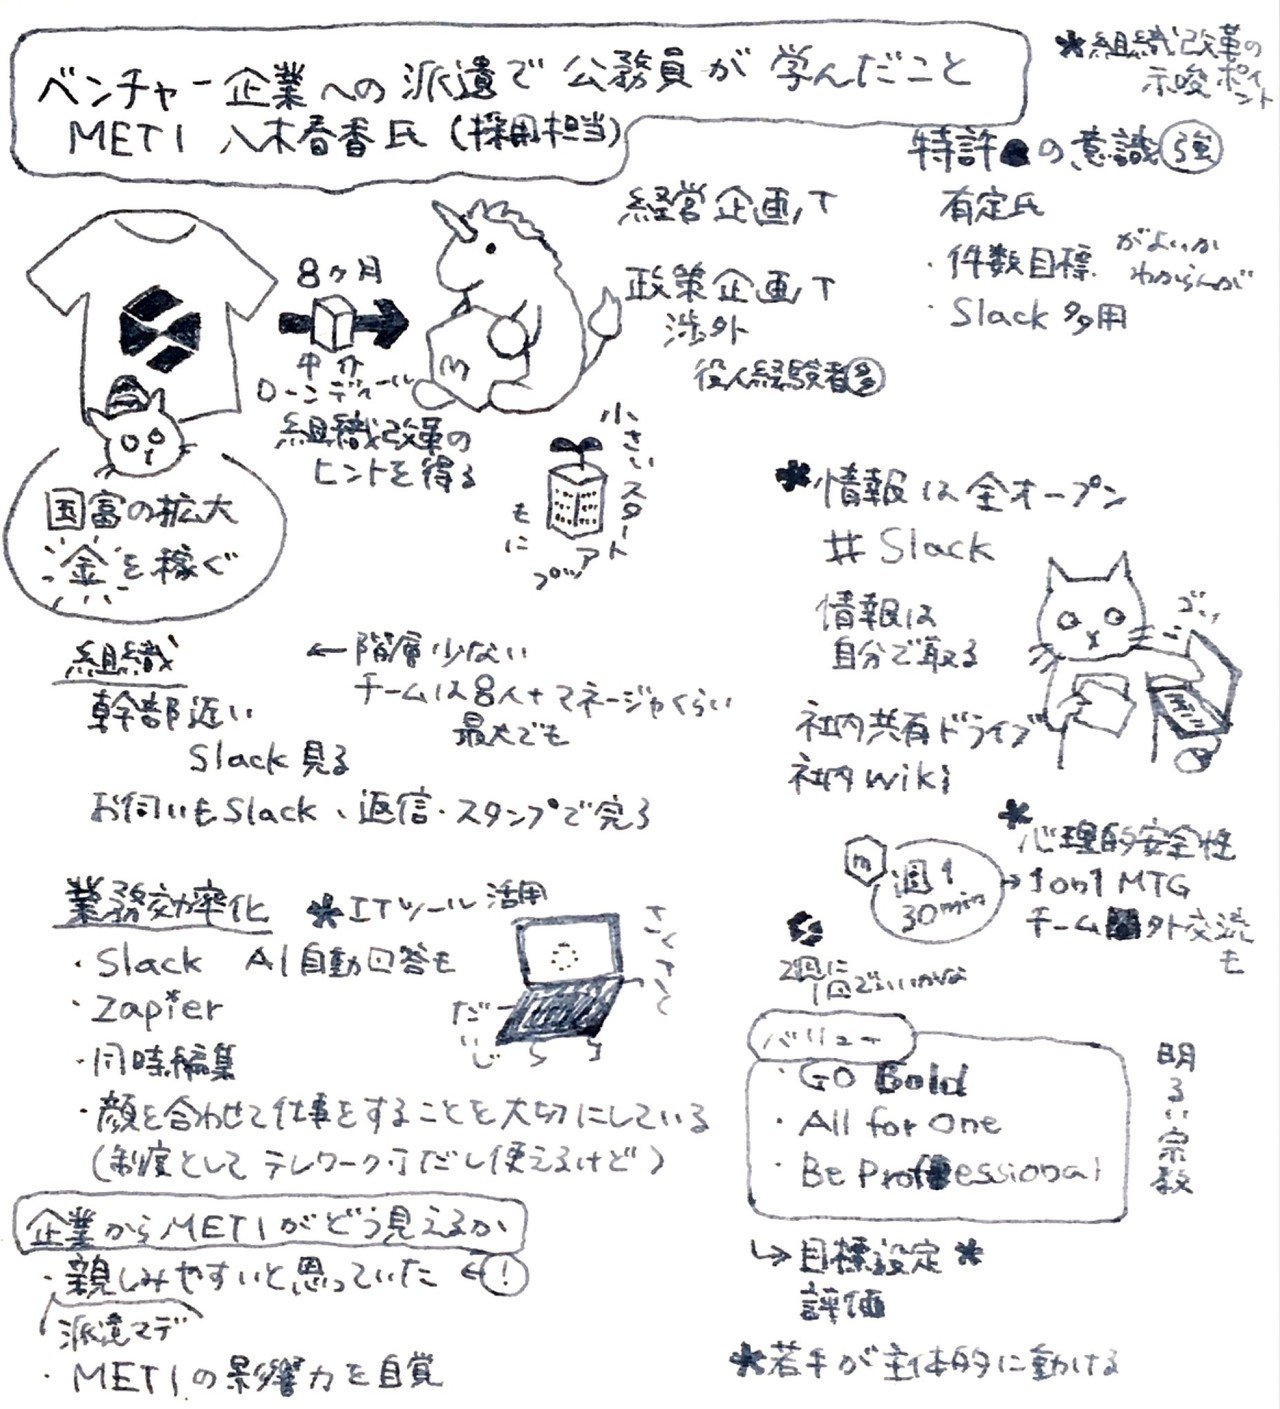 ベンチャー企業への派遣で公務員が学んだこと
METI 八木春香氏(採用担当)
*組織改革の
示唆ポイント
特許の意識強
有定氏
・件数目標 がよいか
わからんが
・Slack多用
経営企画T
政策企画T
渉外
役人経験者多
8ヶ月
中介
ローンディール
m
組織改革の
ヒントを得る
小さいスタートアップ
にも
国富の拡大
金を稼ぐ
*情報は全オープン
# Slack
情報は
自分で取る
社内共有ドライブ
社内wiki
組織
幹部近い
Slack見る
お伺いもSlack、返信・スタンプで完了
←階層少ない
チームは8人+マネージャくらい
最大でも
*心理的安全性
m 週1
30min
→1on1 MTG
チーム外交流
も
2週に
1回でいいかな
業務効率化 *ITツール活用
・Slack AI自動回答も
・Zapier
・同時編集
・顔を合わせて仕事をすることを大切にしている
(制度としてテレワーク可だし使えるけど)
さくさく
だ
バリュー
・GO Bold
・All for One
・Be Professional
明るい宗教
↳目標設定*
評価
*若手が主体的に動ける
企業からMETIがどう見えるか
・親しみやすいと思っていた ←!
派遣マデ
・METIの影響力を自覚